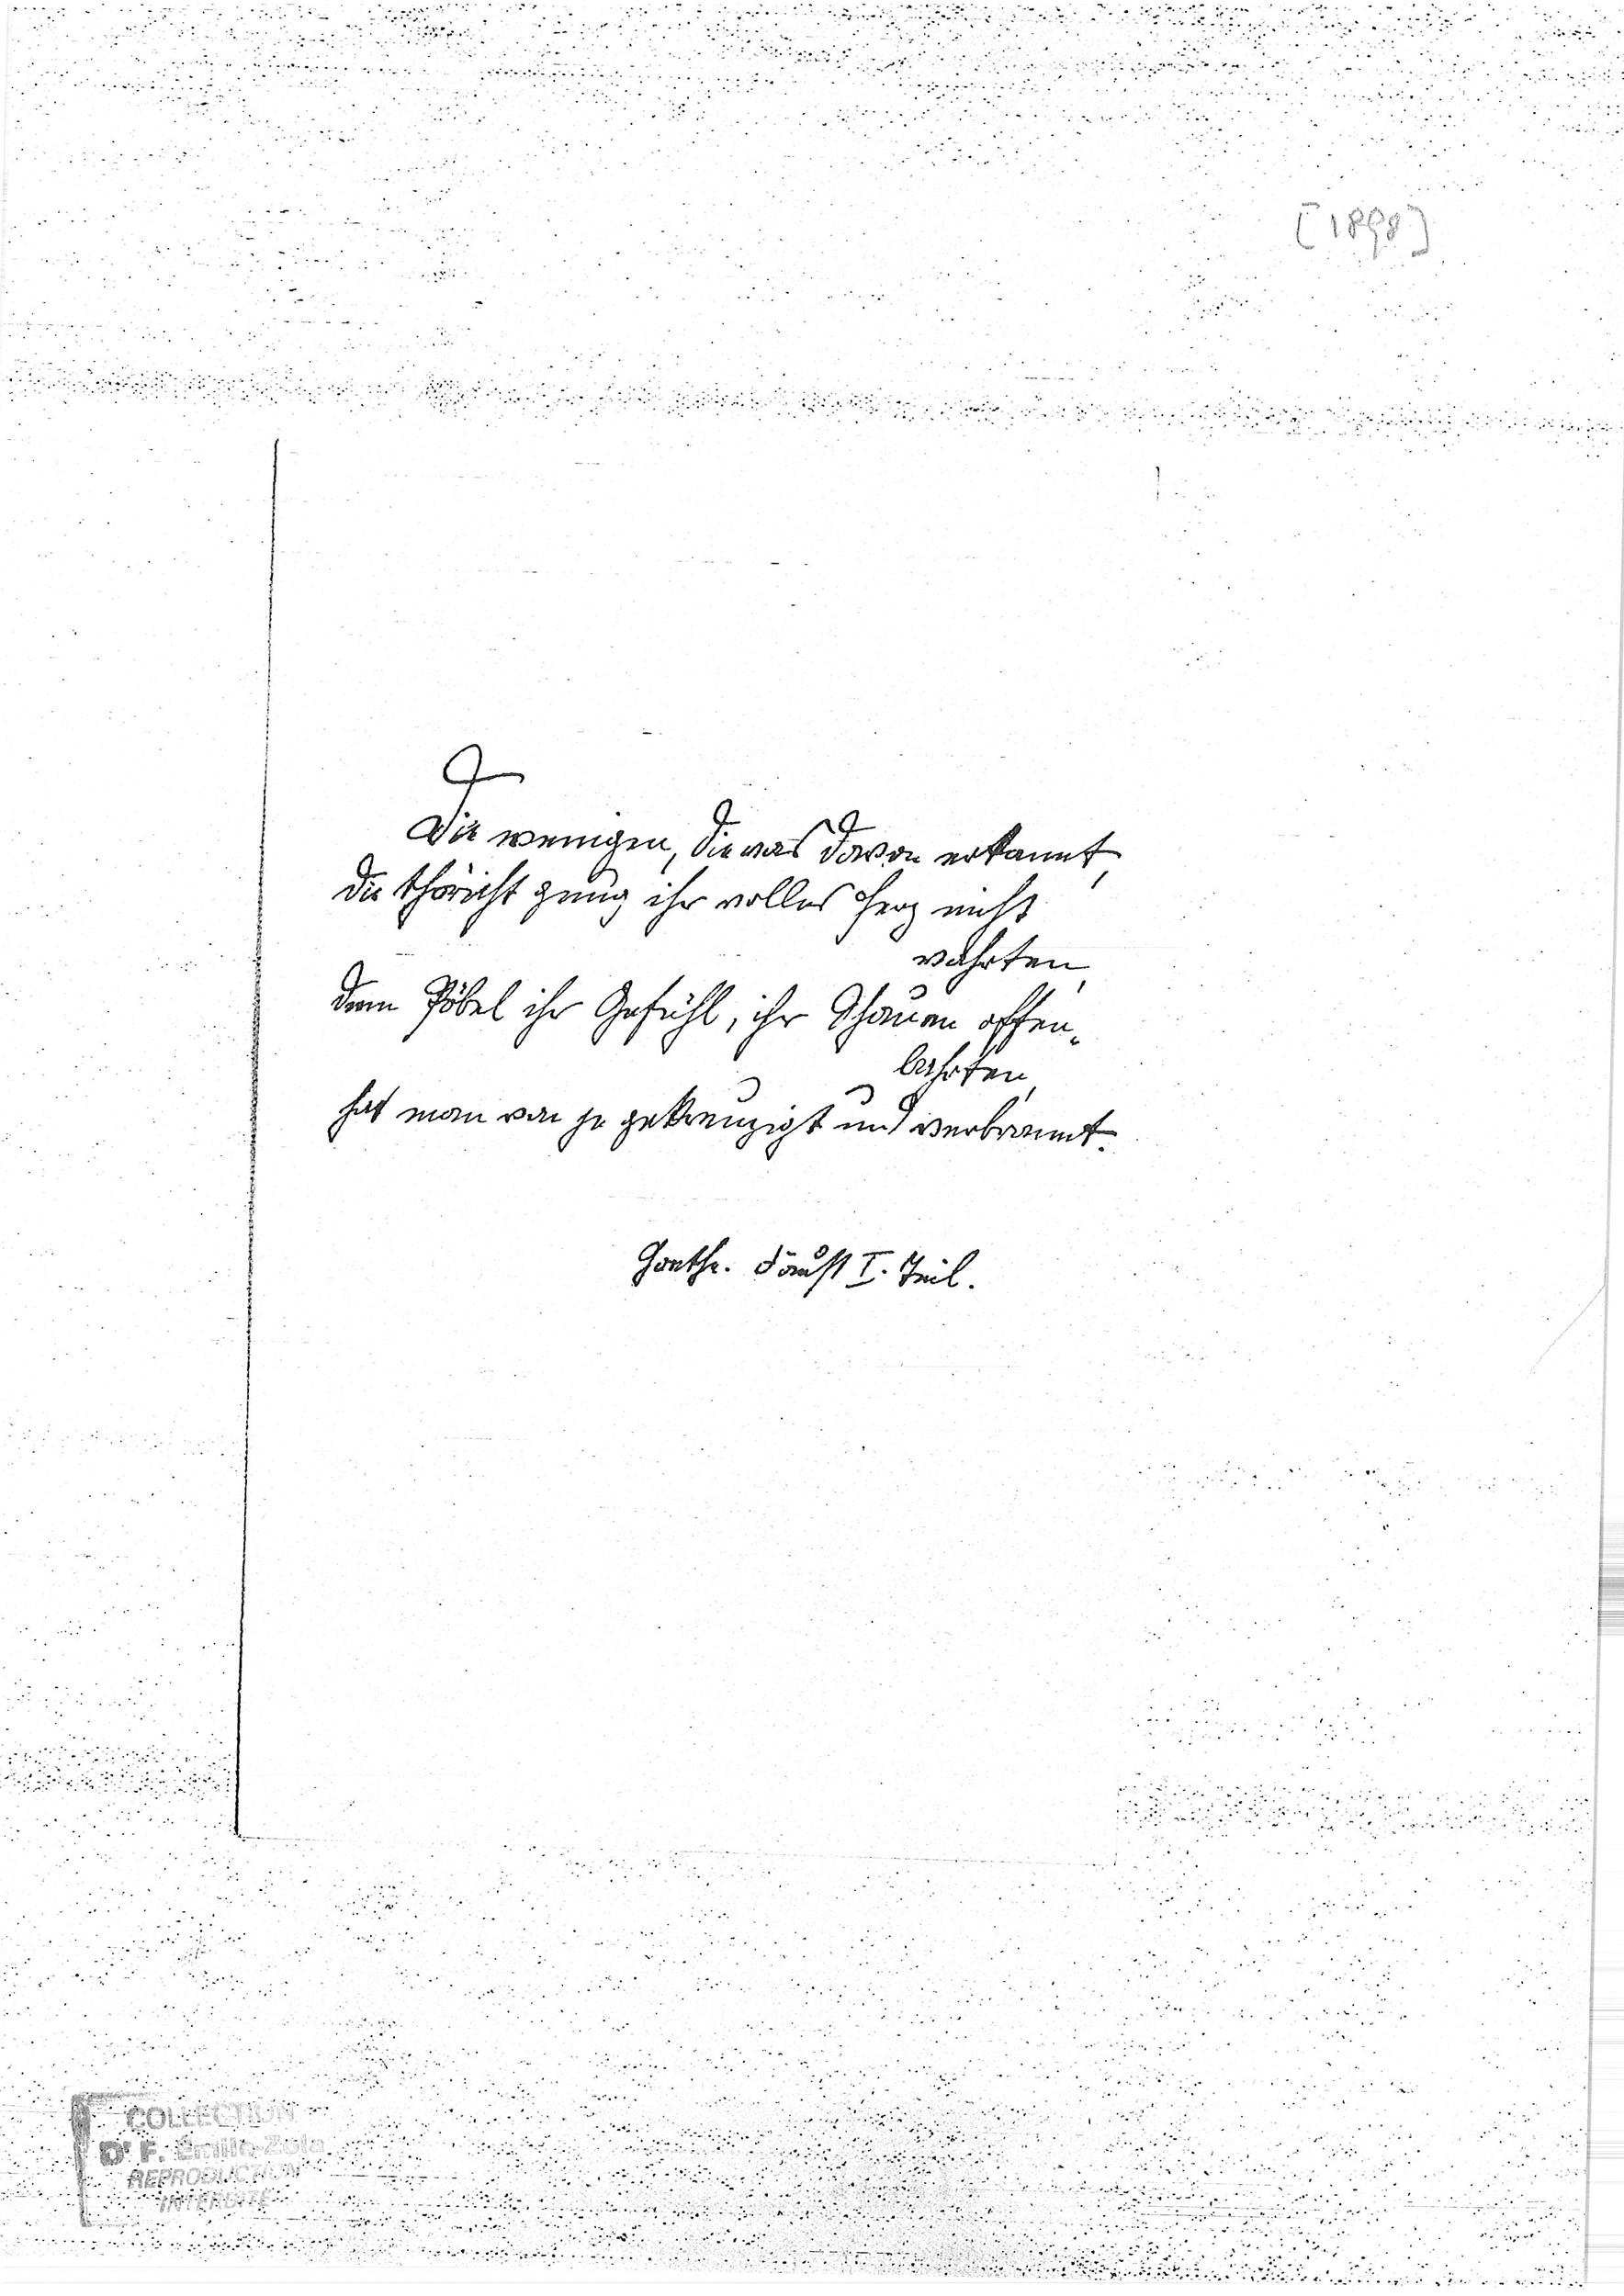 [1898]
Die wenigen, die was davon erkannt,
die thöricht gnug ihr volles Herz nicht
wahrten,
dem Pöbel ihr Gefühl, ihr Schauen offen-
bahrten,
hat man von je gekreuzigt und verbrannt.
Goethe. Faust I. Teil.
COLLECTION
Dr F. Emile-Zola
REPRODUCTION
INTERDITE